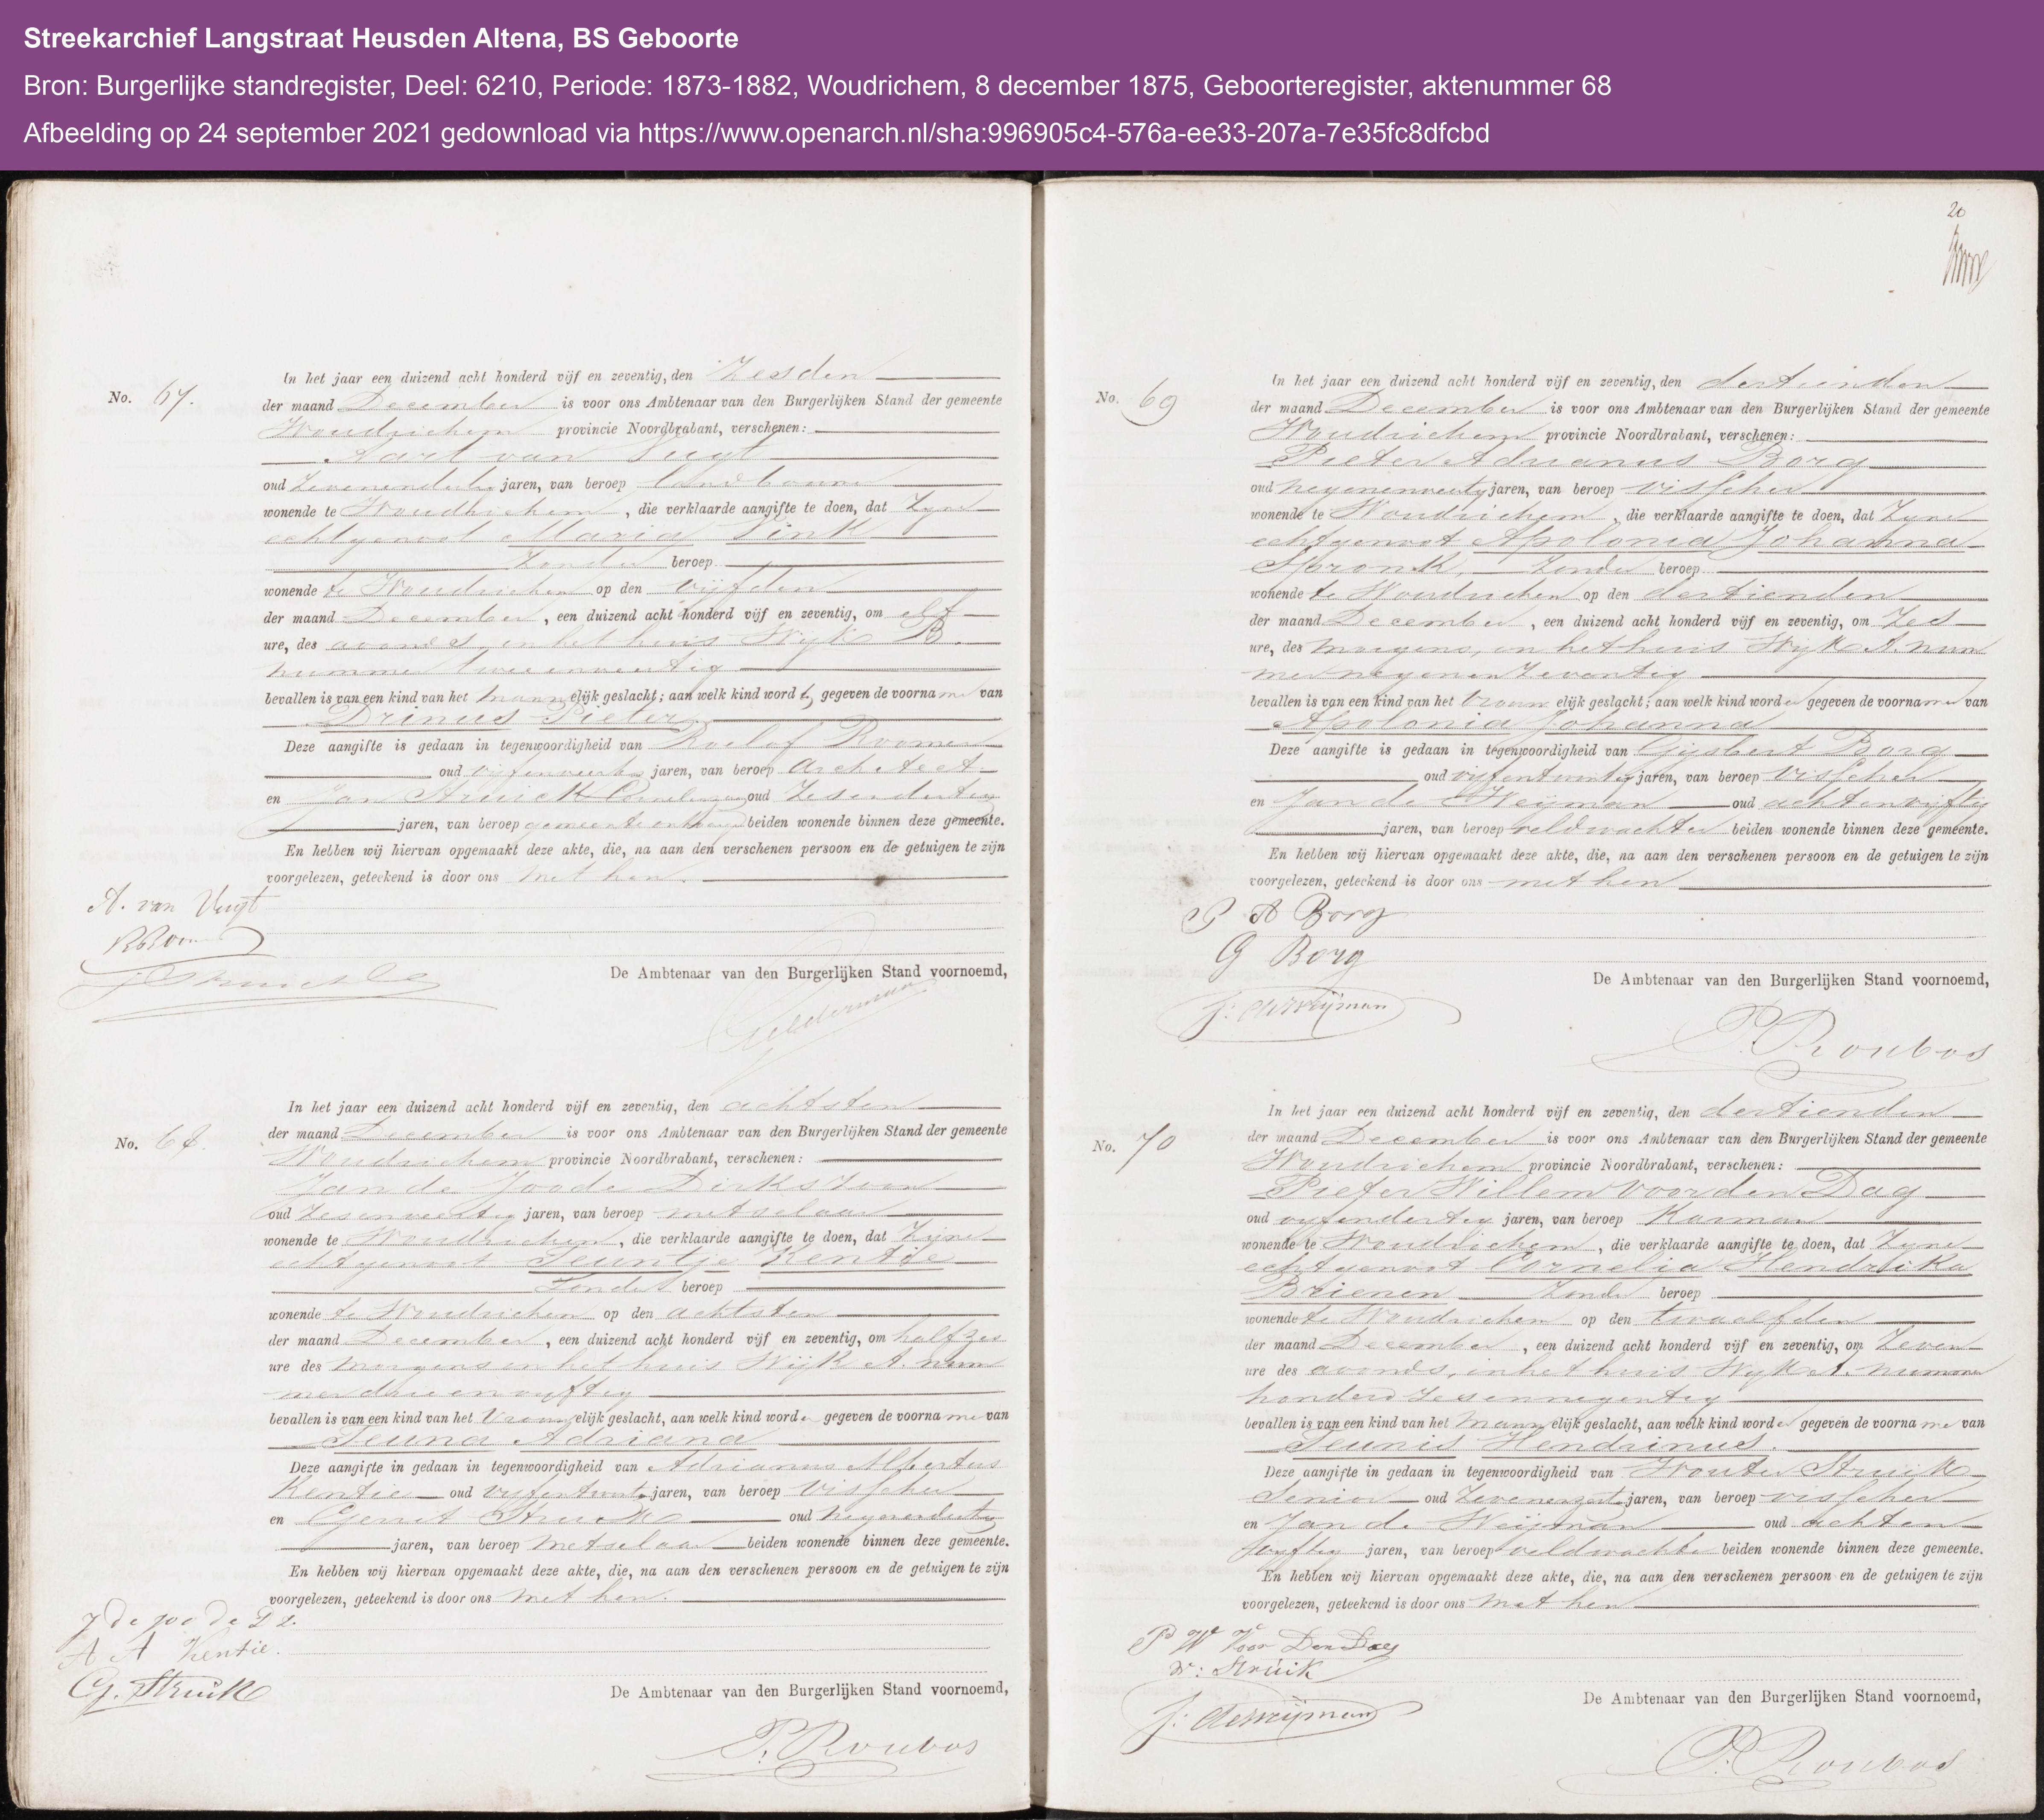 Streekarchief Langstraat Heusden Altena, BS Geboorte
Bron: Burgerlijke standregister, Deel: 6210, Periode: 1873-1882, Woudrichem, 8 december 1875, Geboorteregister, aktenummer 68
Afbeelding op 24 september 2021 gedownload via https://www.openarch.nl/sha:996905c4-576a-ee33-207a-7e35fc8dfcbd
No. 67.
In het jaar een duizend acht honderd vijf en zeventig, den Zesden
der maand December is voor ons Ambtenaar van den Burgerlijken Stand der gemeente
Woudrichem provincie Noordbrabant, verschenen:
Aart van Vugt
oud Zevenendertig jaren, van beroep landbouwer
wonende te Woudrichem, die verklaarde aangifte te doen, dat Zyne
echtgenoot Maria Vink
Zonder beroep
wonende te Woudrichem op den vijfden
der maand December, een duizend acht honderd vijf en zeventig, om elf
ure, des avonds, in het huis Wyk B.
nummer tweeenveertig
bevallen is van een kind van het mannelijk geslacht; aan welk kind wordt gegeven de voorname van
Drinus Pieter
Deze aangifte is gedaan in tegenwoordigheid van Roelof Roomer
oud vijfenveertig jaren, van beroep Architect
en Jan Struick Corneliszoon oud Zesendertig
jaren, van beroep gemeenteontvanger beiden wonende binnen deze gemeente.
En hebben wij hiervan opgemaakt deze akte, die, na aan den verschenen persoon en de getuigen te zijn
voorgelezen, geteekend is door ons met hen.
A. van Vugt
De Ambtenaar van den Burgerlijken Stand voornoemd,
Gelderman
No. 68.
In het jaar een duizend acht honderd vijf en zeventig, den achtsten
der maand December is voor ons Ambtenaar van den Burgerlijken Stand der gemeente
Woudrichem provincie Noordbrabant, verschenen:
Jan de Joode Dirkszoon
oud Zesenveertig jaren, van beroep metselaar
wonende te Woudrichem, die verklaarde aangifte te doen, dat Zijne
echtgenoot Teuntje Kentie
Zonder beroep
wonende te Woudrichem op den achtsten
der maand December, een duizend acht honderd vijf en zeventig, om half zes
ure des morgens in het huis Wijk A. num
mer drieenvyftig
bevallen is van een kind van het Vrouwelijk geslacht, aan welk kind worde gegeven de voorname van
Teuna Adriana
Deze aangifte in gedaan in tegenwoordigheid van Adrianus Albertus
Kentie oud vyfentwintig jaren, van beroep visscher
en Gerrit Struik oud negenendertig
jaren, van beroep metselaar beiden wonende binnen deze gemeente.
En hebben wij hiervan opgemaakt deze akte, die, na aan den verschenen persoon en de getuigen te zijn
voorgelezen, geteekend is door ons met hen.
J de joode Dz
A A Kentie.
G. Struik
De Ambtenaar van den Burgerlijken Stand voornoemd,
P. Roubos
20
No. 69
In het jaar een duizend acht honderd vijf en zeventig, den dertienden
der maand December is voor ons Ambtenaar van den Burgerlijken Stand der gemeente
Woudrichem provincie Noordbrabant, verschenen:
Pieter Adrianus Borg
oud negenenveertig jaren, van beroep visscher
wonende te Woudrichem, die verklaarde aangifte te doen, dat Zyne
echtgenoot Apolonia Johanna
Spronk, Zonder beroep
wonende te Woudrichem op den dertienden
der maand December, een duizend acht honderd vijf en zeventig, om Zes
ure, des morgens, in het huis Wyk A. num
mer negenenzeventig
bevallen is van een kind van het Vrouwelijk geslacht; aan welk kind worde gegeven de voorname van
Apolonia Johanna
Deze aangifte is gedaan in tegenwoordigheid van Gysbert Borg
oud vyfentwintig jaren, van beroep visscher
en Jan de Weijman oud achtenvyftig
jaren, van beroep veldwachter beiden wonende binnen deze gemeente.
En hebben wij hiervan opgemaakt deze akte, die, na aan den verschenen persoon en de getuigen te zijn
voorgelezen, geteekend is door ons met hen
P A Borg
G Borg
J: de Weijman
De Ambtenaar van den Burgerlijken Stand voornoemd,
P. Roubos
No. 70
In het jaar een duizend acht honderd vijf en zeventig, den dertienden
der maand December is voor ons Ambtenaar van den Burgerlijken Stand der gemeente
Woudrichem provincie Noordbrabant, verschenen:
Pieter Willem Voor den Dag
oud vyfendertig jaren, van beroep Karman
wonende te Woudrichem, die verklaarde aangifte te doen, dat Zyne
echtgenoot Cornelia Hendrika
Brienen Zonder beroep
wonende te Woudrichem op den twaalfden
der maand December, een duizend acht honderd vijf en zeventig, om Zeven
ure des avonds, in het huis Wyk A. nummer
honderd Zesennegentig
bevallen is van een kind van het Mannelijk geslacht, aan welk kind worde gegeven de voorname van
Teunis Hendrinus.
Deze aangifte in gedaan in tegenwoordigheid van Wouter Struik
Senior oud Zevenenzestig jaren, van beroep visscher
en Jan de Weijman oud achten
vyftig jaren, van beroep veldwachter beiden wonende binnen deze gemeente.
En hebben wij hiervan opgemaakt deze akte, die, na aan den verschenen persoon en de getuigen te zijn
voorgelezen, geteekend is door ons met hen
P W Voor Den Dag
W: Struik
J: de Weijman
De Ambtenaar van den Burgerlijken Stand voornoemd,
P. Roubos